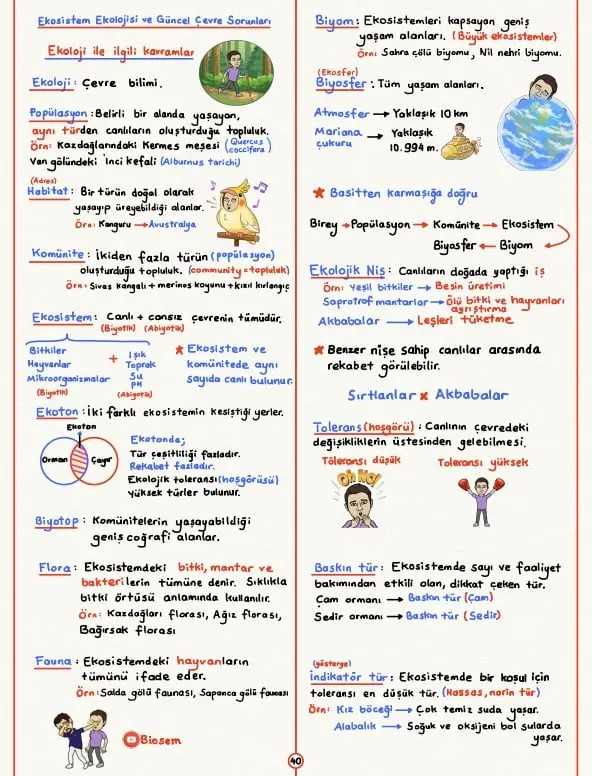 Ekosistem Ekolojisi ve Güncel Çevre Sorunları
Ekoloji ile ilgili kavramlar
Ekoloji : Çevre bilimi.
Popülasyon : Belirli bir alanda yaşayan,
aynı türden canlıların oluşturduğu topluluk.
Örn: Kazdağlarındaki Kermes meşesi (Quercus coccifera)
Van gölündeki inci kefali (Alburnus tarichi)
(Adres)
Habitat : Bir türün doğal olarak
yaşayıp üreyebildiği alanlar.
Örn: Kanguru → Avustralya
Komünite : İkiden fazla türün (popülasyon)
oluşturduğu topluluk. (community = topluluk)
Örn: Sivas kangalı + merinos koyunu + kızıl kırlangıç
Ekosistem : Canlı + cansız çevrenin tümüdür.
(Biyotik) (Abiyotik)
Bitkiler
Hayvanlar
Mikroorganizmalar
(Biyotik)
+
Işık
Toprak
Su
pH
(Abiyotik)
★ Ekosistem ve
komünitede aynı
sayıda canlı bulunur.
Ekoton : İki farklı ekosistemin kesiştiği yerler.
Ekoton
Orman
Çayır
Ekotonda;
Tür çeşitliliği fazladır.
Rekabet fazladır.
Ekolojik toleransı (hoşgörüsü)
yüksek türler bulunur.
Biyotop : Komünitelerin yaşayabildiği
geniş coğrafi alanlar.
Flora : Ekosistemdeki bitki, mantar ve
bakterilerin tümüne denir. Sıklıkla
bitki örtüsü anlamında kullanılır.
Örn: Kazdağları florası, Ağız florası,
Bağırsak florası
Fauna : Ekosistemdeki hayvanların
tümünü ifade eder.
Örn: Salda gölü faunası, Sapanca gölü faunası
Biosem
Biyom : Ekosistemleri kapsayan geniş
yaşam alanları. (Büyük ekosistemler)
Örn: Sahra çölü biyomu, Nil nehri biyomu.
(Ekosfer)
Biyosfer : Tüm yaşam alanları.
Atmosfer → Yaklaşık 10 km
Mariana çukuru → Yaklaşık
10.994 m.
★ Basitten karmaşığa doğru
Birey → Popülasyon → Komünite → Ekosistem
Biyosfer ← Biyom
Ekolojik Niş : Canlıların doğada yaptığı iş
Örn: Yeşil bitkiler → Besin üretimi
Saprotrof mantarlar → Ölü bitki ve hayvanları
ayrıştırma
Akbabalar → Leşleri tüketme
★ Benzer nişe sahip canlılar arasında
rekabet görülebilir.
Sırtlanlar x Akbabalar
Tolerans (hoşgörü) : Canlının çevredeki
değişikliklerin üstesinden gelebilmesi.
Töleransı düşük
Toleransı yüksek
Oh No!
Baskın tür : Ekosistemde sayı ve faaliyet
bakımından etkili olan, dikkat çeken tür.
Çam ormanı → Baskın tür (Çam)
Sedir ormanı → Baskın tür (Sedir)
(gösterge)
İndikatör tür : Ekosistemde bir koşul için
toleransı en düşük tür. (Hassas, narin tür)
Örn: Kız böceği → Çok temiz suda yaşar.
Alabalık → Soğuk ve oksijeni bol sularda
yaşar.
40